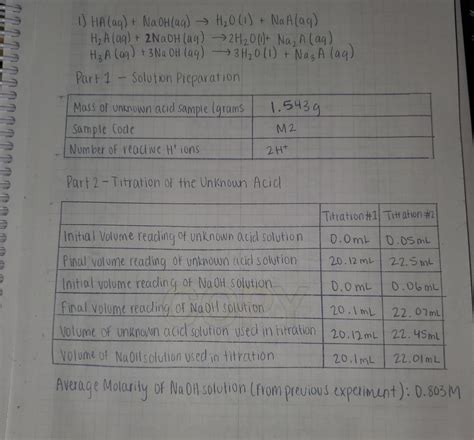 1) HA(aq) + NaOH(aq) → H₂O(l) + NaA(aq)
H₂A(aq) + 2NaOH(aq) → 2H₂O(l) + Na₂A(aq)
H₃A(aq) + 3NaOH(aq) → 3H₂O(l) + Na₃A(aq)
Part 1 - Solution Preparation
Mass of unknown acid sample (grams 1.543g
Sample Code M2
Number of reactive H⁺ ions 2H⁺
Part 2 - Titration of the Unknown Acid
Titration#1 Titration #2
Initial volume reading of unknown acid solution 0.0mL 0.05mL
Final volume reading of unknown acid solution 20.12mL 22.5mL
Initial volume reading of NaOH solution 0.0mL 0.06mL
Final volume reading of NaOH solution 20.1mL 22.07mL
Volume of unknown acid solution used in titration 20.12mL 22.45mL
Volume of NaOH solution used in titration 20.1mL 22.01mL
Average Molarity of NaOH solution (from previous experiment): 0.803M